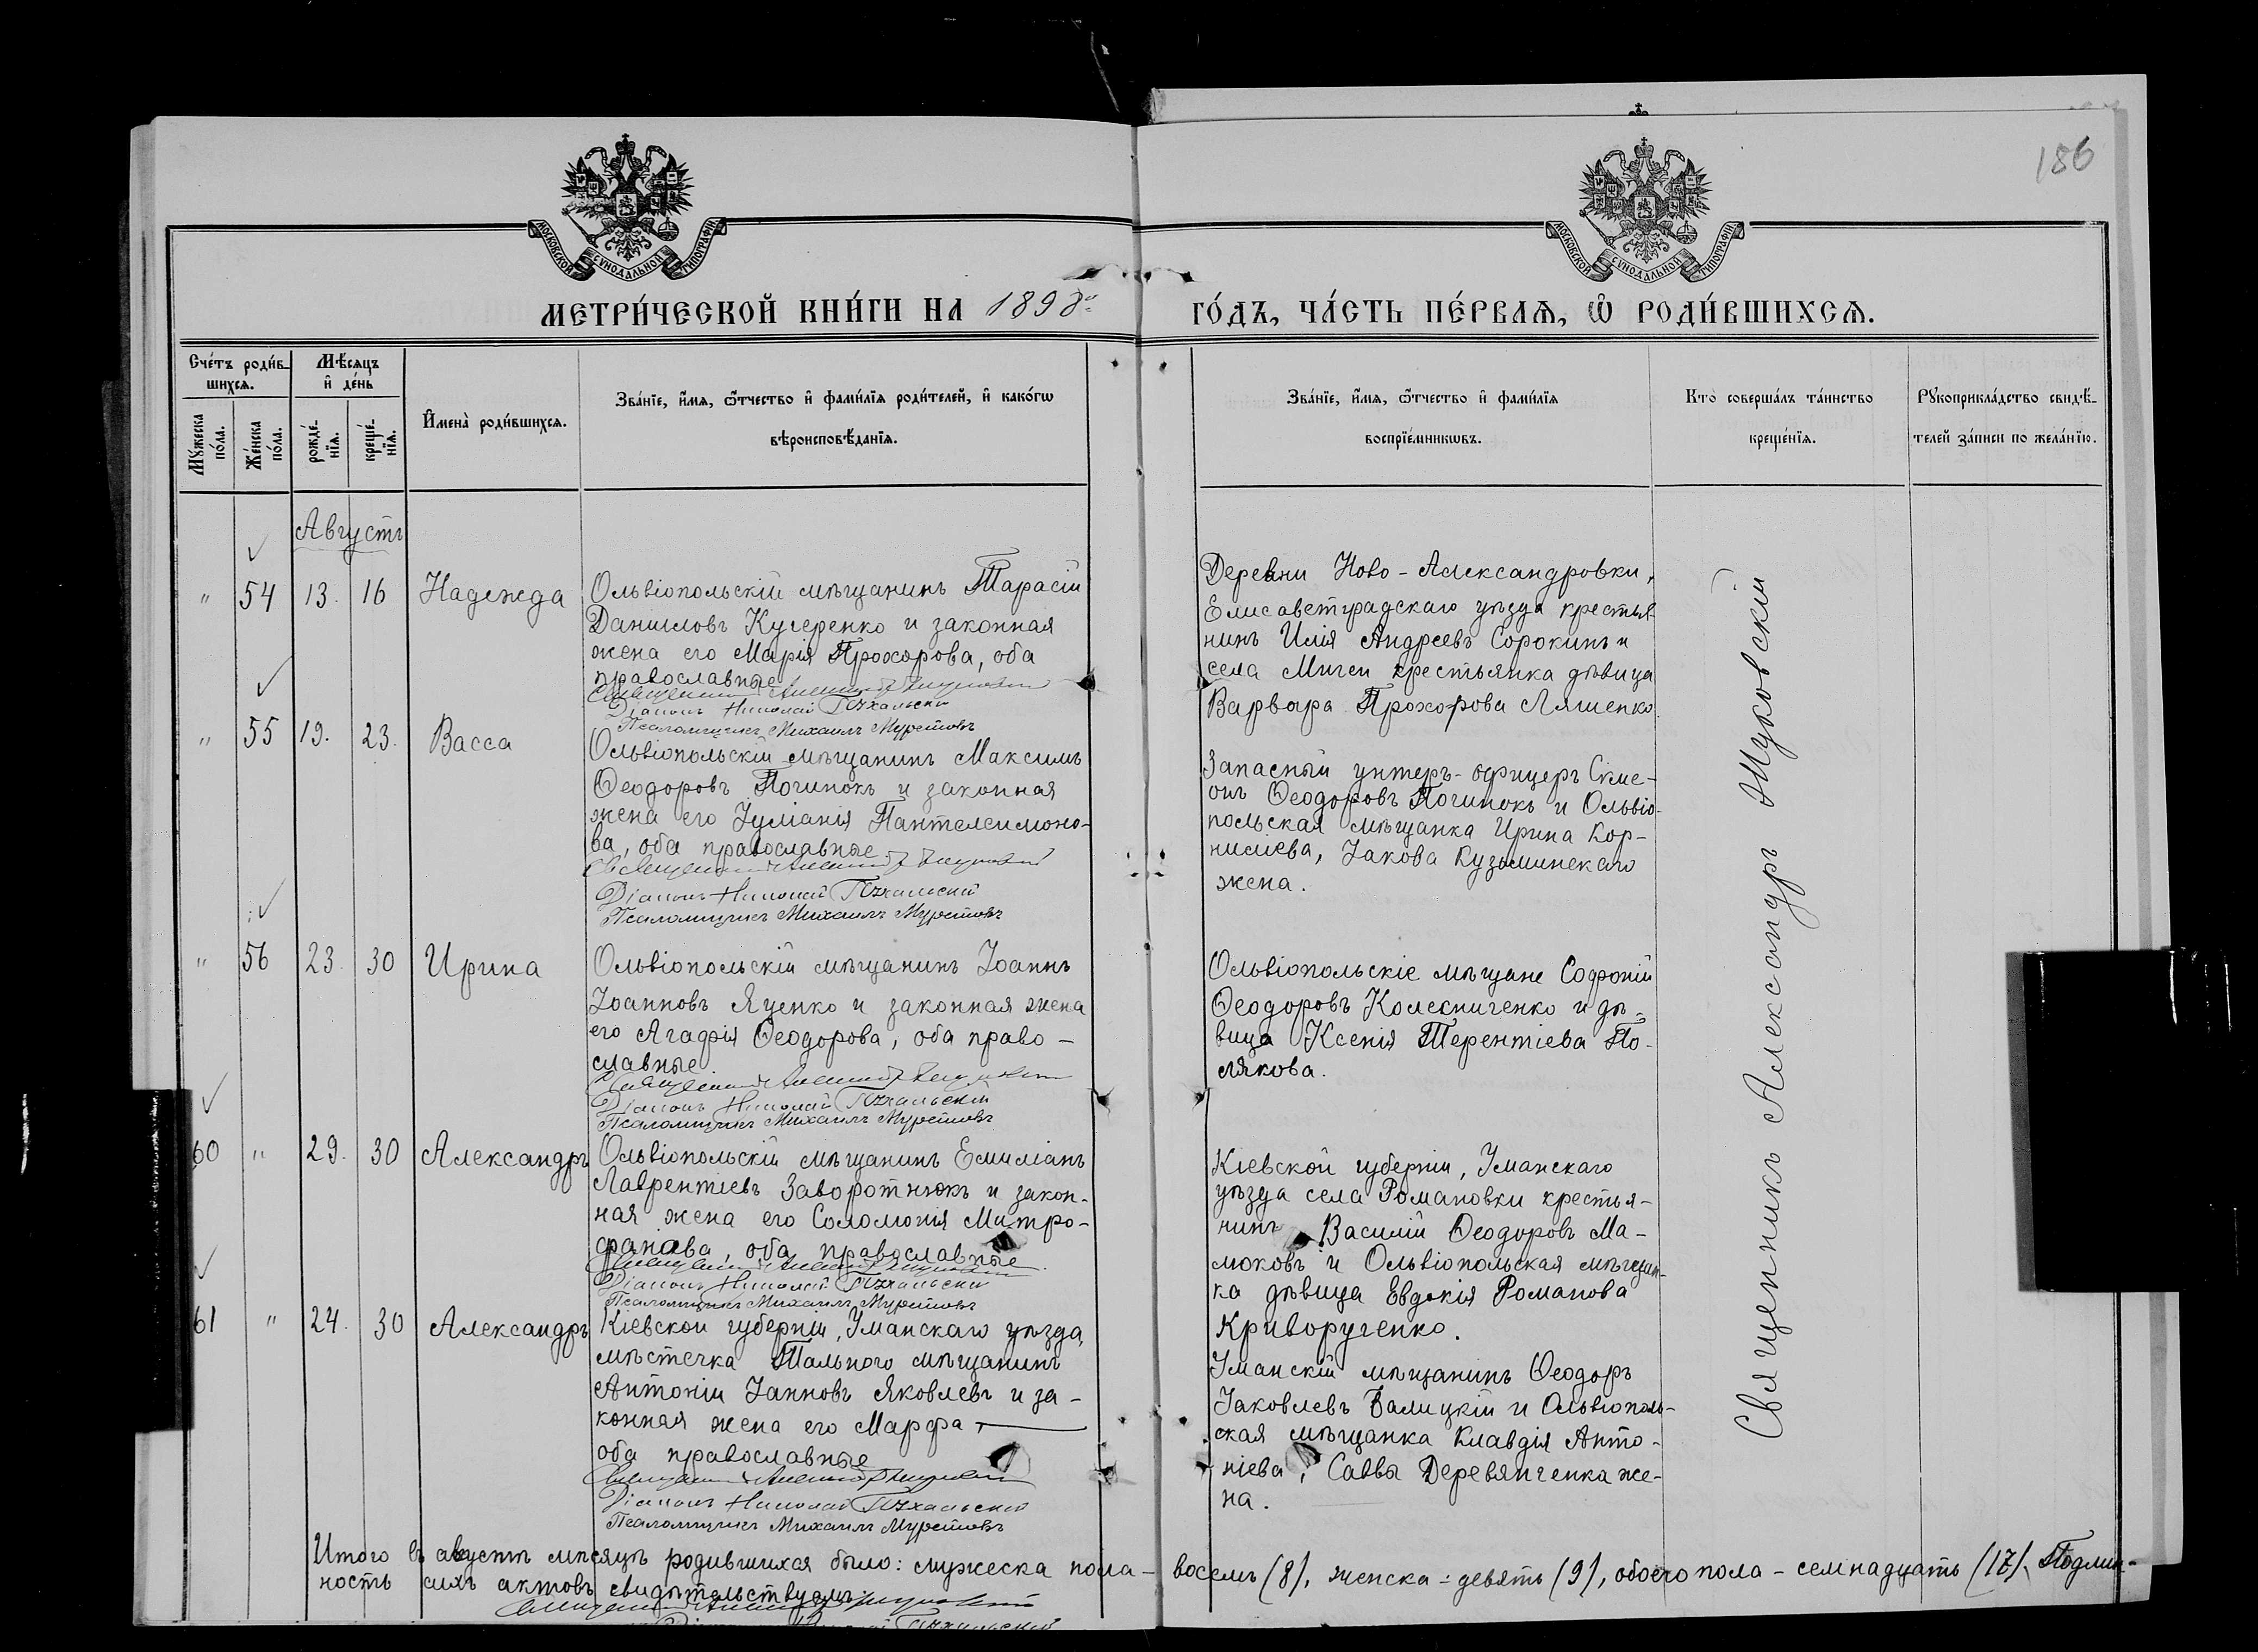 186
МОСКОВСКОЙ СУНОДАЛЬНОЙ ТИПОГРАФІИ
МОСКОВСКОЙ СУНОДАЛЬНОЙ ТИПОГРАФІИ
МЕТРИ́ЧЕСКОЙ КНИ́ГИ НА 1898й
ГО́ДЪ, ЧА́СТЬ ПЕ́РВАѦ, Ѡ҆ РОДИ́ВШИХСѦ.
Сче́тъ роди́в-
шихсѧ.
Мꙋ́жеска по́ла.
Же́нска по́ла.
Мѣ́сѧцъ
и҆ де́нь
рожде́-нїѧ.
креще́-нїѧ.
И҆мена̀ роди́вшихсѧ.
Зва́нїе, и҆́мѧ, ѻ҆́тчество и҆ фами́лїѧ роди́телей, и҆ како́гѡ
вѣроисповѣ́данїѧ.
Зва́нїе, и҆́мѧ, ѻ҆́тчество и҆ фами́лїѧ
воспрїе́мникѡвъ.
Кто̀ соверша́лъ та́инство
креще́нїѧ.
Рꙋкоприкла́дство свидѣ́-
телей за́писи по жела́нїю.
Августъ
" 54 13. 16 Надежда
Ольвіопольскій мѣщанинъ Тарасій
Даниловъ Кучеренко и законная
жена его Марія Прохорова, оба
православные
Священникъ Александръ Жуковскій
Діаконъ Николай Пухальскій
Псаломщикъ Михаилъ Муретовъ
Деревни Ново-Александровки,
Елисаветградскаго уѣзда крестья-
нинъ Илія Андреевъ Сорокинъ и
села Мигеи крестьянка дѣвица
Варвара Прохорова Ляшенко.
" 55 19. 23. Васса
Ольвіопольскій мѣщанинъ Максимъ
Ѳеодоровъ Починокъ и законная
жена его Іуліанія Пантелеимоно-
ва, оба православные
Священникъ Александръ Жуковскій
Діаконъ Николай Пухальскій
Псаломщикъ Михаилъ Муретовъ
Запасный унтеръ-офицеръ Симе-
онъ Ѳеодоровъ Починокъ и Ольвіо-
польская мѣщанка Ирина Кор-
ниліева, Іакова Кузьминскаго
жена.
" 56 23. 30 Ирина
Ольвіопольскій мѣщанинъ Іоаннъ
Іоанновъ Яценко и законная жена
его Агафія Ѳеодорова, оба право-
славные
Священникъ Александръ Жуковскій
Діаконъ Николай Пухальскій
Псаломщикъ Михаилъ Муретовъ
Ольвіопольскіе мѣщане Софроній
Ѳеодоровъ Колесниченко и дѣ-
вица Ксенія Терентіева По-
лякова.
60 " 29. 30 Александръ
Ольвіопольскій мѣщанинъ Емиліанъ
Лаврентіевъ Заворотнюкъ и закон-
ная жена его Соломонія Митро-
фанова, оба православные
Священникъ Александръ Жуковскій
Діаконъ Николай Пухальскій
Псаломщикъ Михаилъ Муретовъ
Кіевской губерніи, Уманскаго
уѣзда села Романовки крестья-
нинъ Василій Ѳеодоровъ Ма-
моковъ и Ольвіопольская мѣщан-
ка дѣвица Евдокія Романова
Криворученко.
61 " 24. 30 Александръ
Кіевской губерніи, Уманскаго уѣзда,
мѣстечка Тального мѣщанинъ
Антоній Іанновъ Яковлевъ и за-
конная жена его Марфа,
оба православные
Священникъ Александръ Жуковскій
Діаконъ Николай Пухальскій
Псаломщикъ Михаилъ Муретовъ
Уманскій мѣщанинъ Ѳеодоръ
Іаковлевъ Балицкій и Ольвіополь-
ская мѣщанка Клавдія Анто-
ніева, Саввы Деревянченка же-
на.
Священникъ Александръ Жуковскій
Итого въ августѣ мѣсяцѣ родившихся было: мужеска пола - восемь (8), женска - девять (9), обоего пола - семнадцать (17). Подлин-
ность сихъ актовъ свидѣтельствуемъ:
Священникъ Александръ Жуковскій
Діаконъ Николай Пухальскій